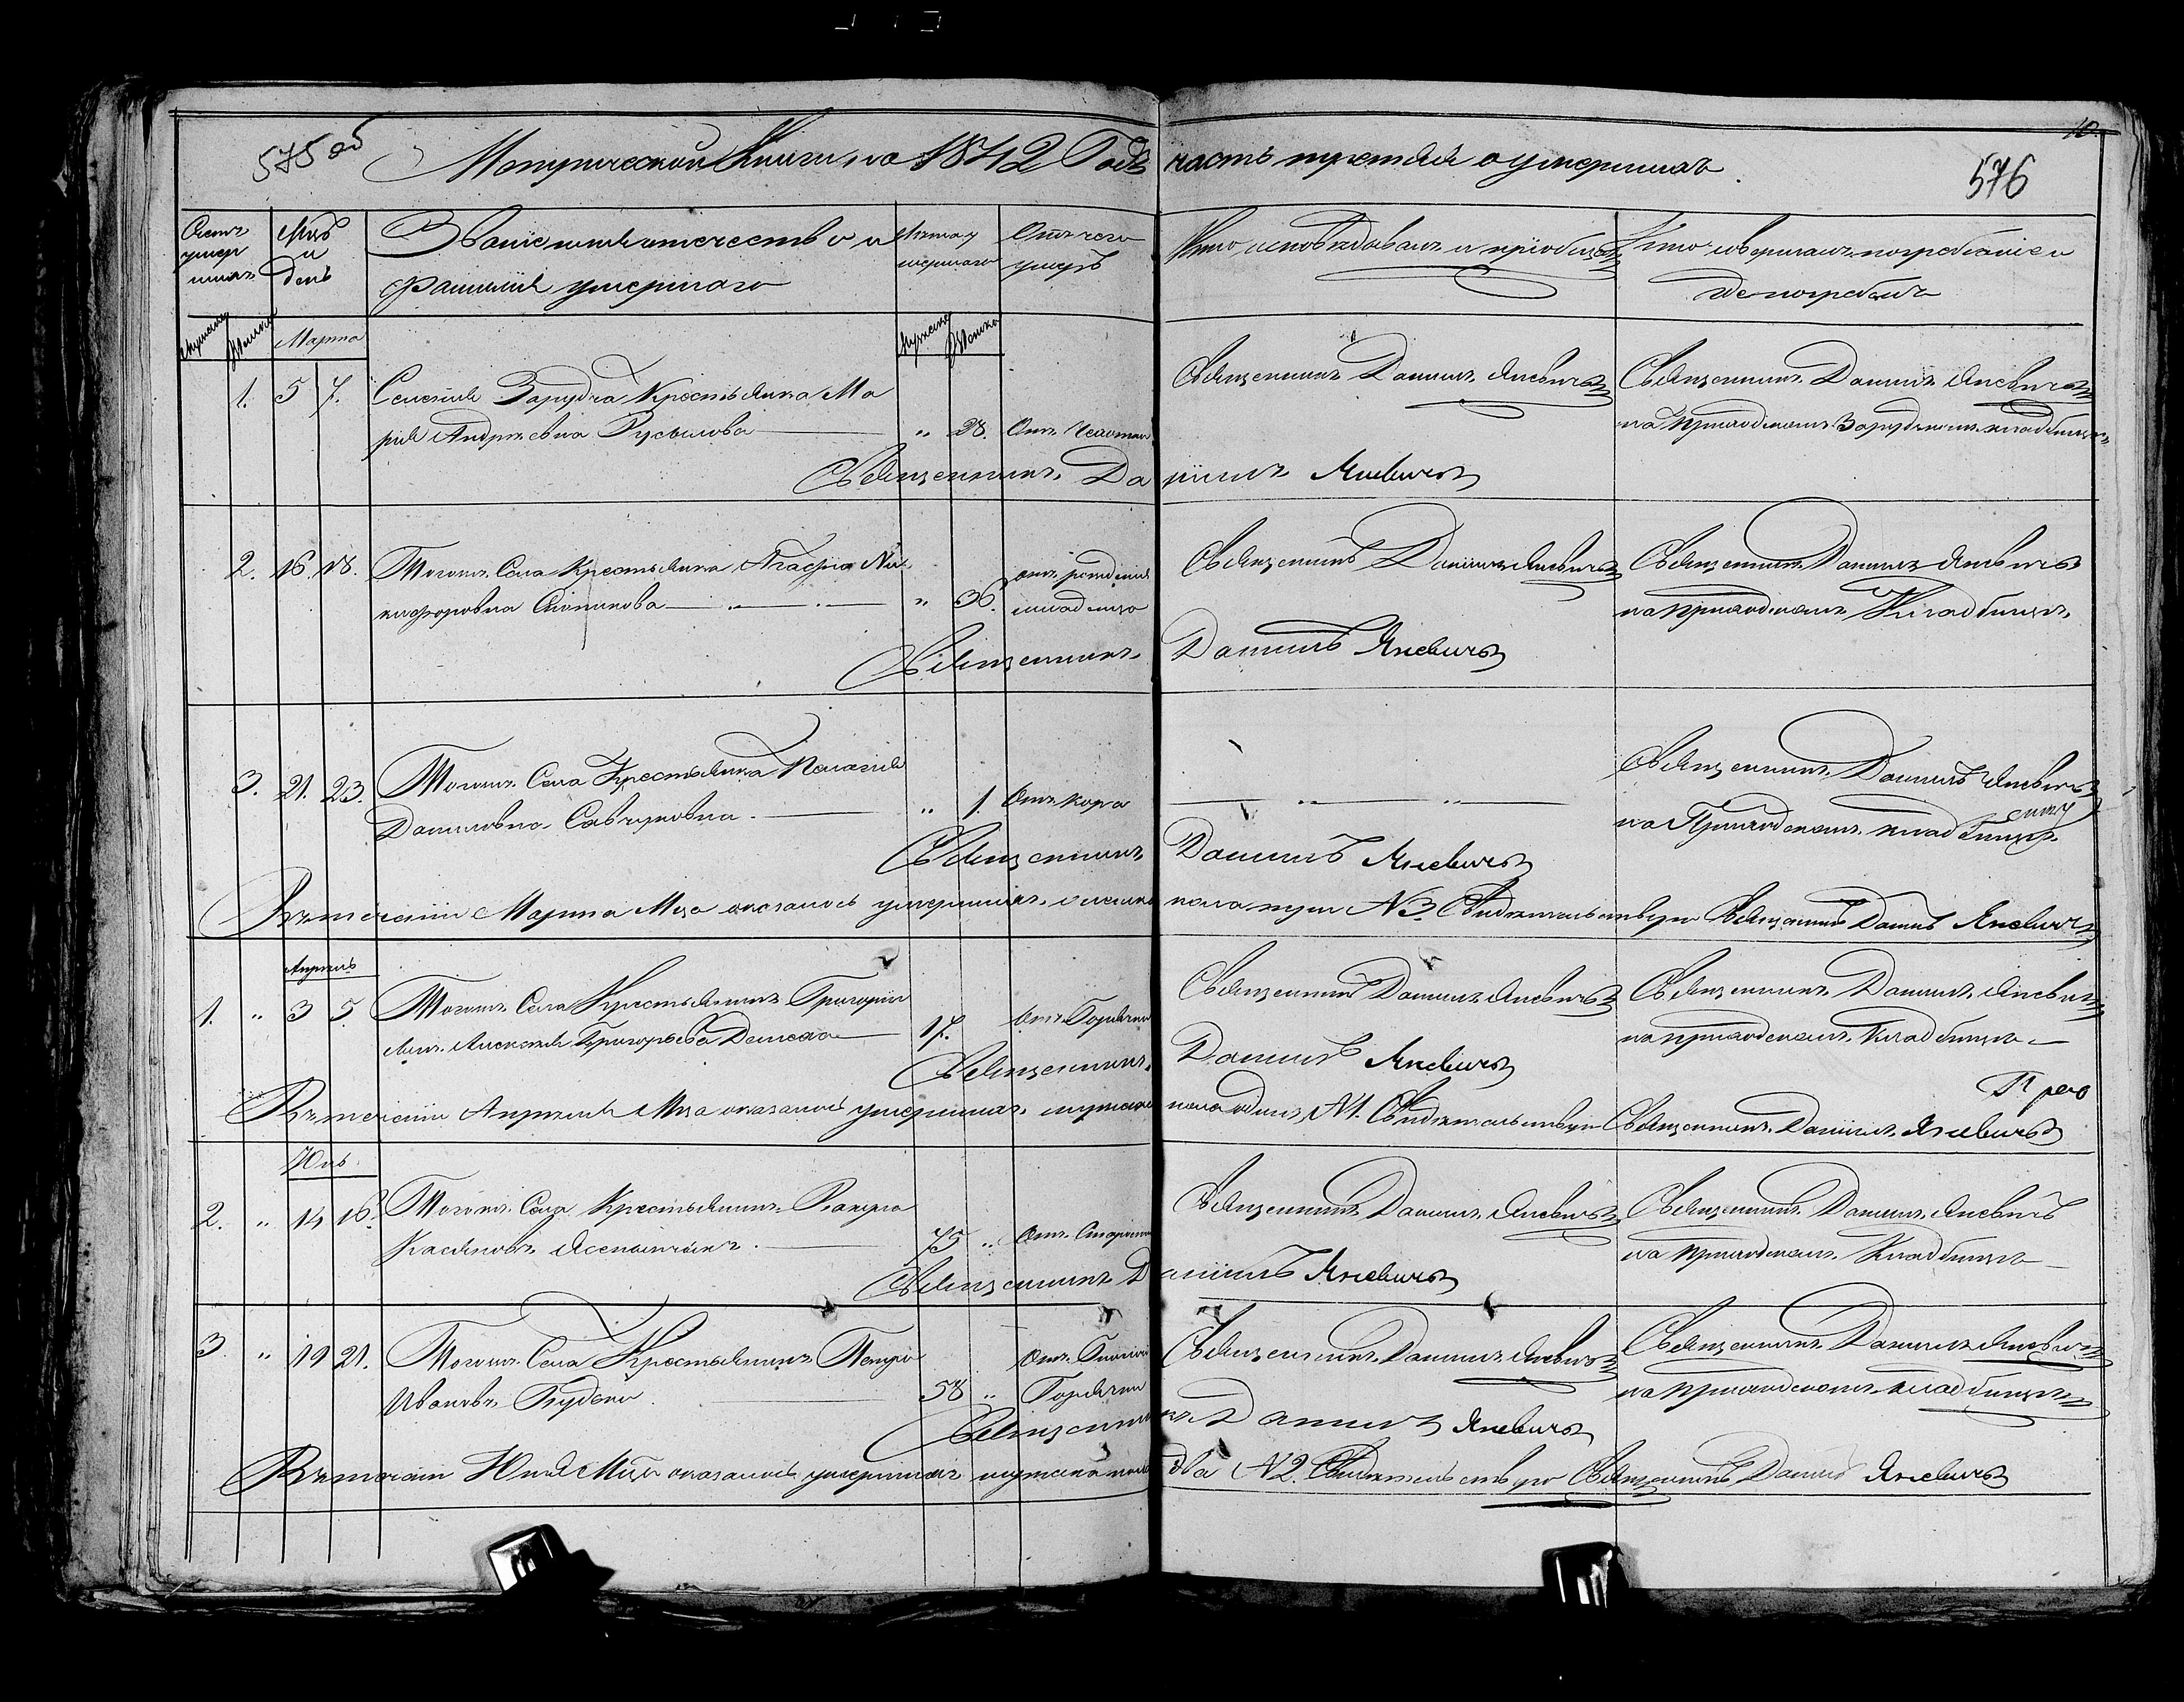 575 об
Метрической Книги, на 1842 Годъ часть третія о умершихъ.
10
576
Счетъ умершихъ
Мцъ и день
Званіе имя отечество и фамилія умершаго
Лѣта умершаго
Отъ чего умеръ
Кто исповѣдывалъ и пріобщалъ
Кто совершалъ погребеніе и где погребенъ
Мужеска Женска
Марта
Мужеска Женска
1. 5 7. Селенія Заруdча Крестьянка Ма
рія Андреевна Русылова " 28. Отъ Чахотки
Священникъ Даніилъ Яневичъ
Священникъ Даніилъ Яневичъ
на Приходскомъ Зарудскомъ кладбищѣ
Священникъ Даніилъ Яневичъ
2. 16. 18. Тогожъ Села Крестьянка Агафія Ни
кифоровна " 36. отъ рожденія
младенца
Священникъ Даніилъ Яневичъ
Священникъ Даніилъ Яневичъ
на приходскомъ Кладбищѣ
Священникъ Даніилъ Яневичъ
3. 21. 23. Тогожъ Села Крестьянка Пелагія
Даниловна Савчуковна " 1. Отъ Кора
Священникъ Даніилъ Яневичъ
на Приходскомъ кладбищѣ
Священникъ Даніилъ Яневичъ
Въ теченіи Марта Мца оказалось умершихъ женска пола три N 3. Свидетельствую Священникъ Даніилъ Яневичъ
Апрель
1. " 3 5. Тогожъ Села Крестьянинъ Григорій
Григорьева 17. Отъ Горячки
Священникъ Даніилъ Яневичъ
Священникъ Даніилъ Яневичъ
на приходскомъ Кладбищѣ
Священникъ Даніилъ Яневичъ
Въ теченіи Апреля Мца оказалось умершихъ мужеска пола одинъ N 1. Свидетельствую Священникъ Даніилъ Яневичъ
Юнь
2. " 14 16. Тогожъ Села Крестьянинъ
Касяновъ 75 " Отъ Старости
Священникъ Даніилъ Яневичъ
Священникъ Даніилъ Яневичъ
на приходскомъ Кладбищѣ
Священникъ Даніилъ Яневичъ
3. " 19 21. Тогожъ Села Крестьянинъ Петро
Ивановъ 58 " Отъ
Горячки
Священникъ Даніилъ Яневичъ
Священникъ Даніилъ Яневичъ
на приходскомъ кладбищѣ
Священникъ Даніилъ Яневичъ
Въ теченіи Юня Мца оказалось умершихъ мужеска пола два N 2. Свидетельствую Священникъ Даніилъ Яневичъ